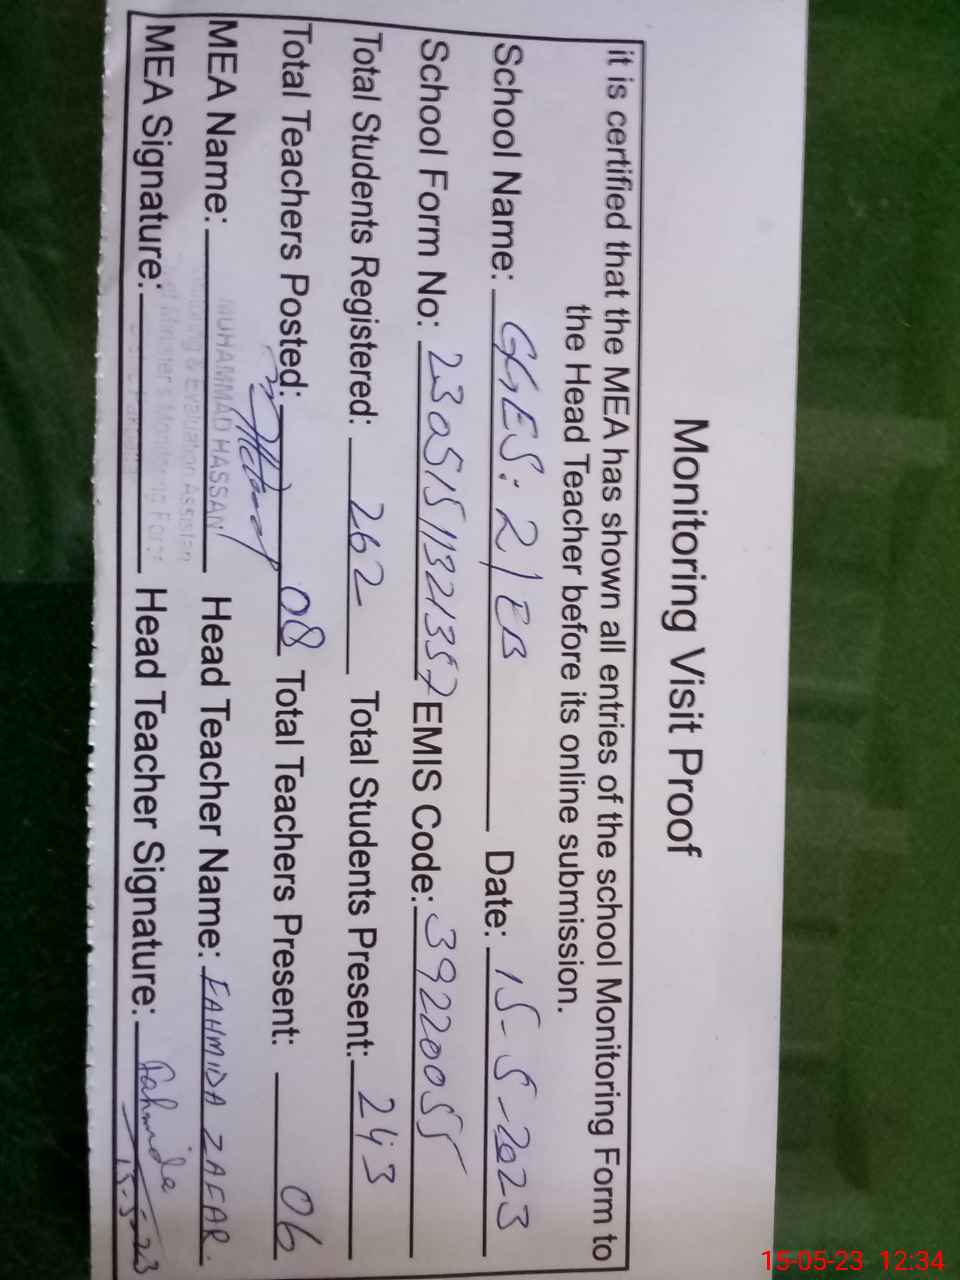 Monitoring Visit Proof
it is certified that the MEA has shown all entries of the school Monitoring Form to
the Head Teacher before its online submission.
School Name: GGES: 21 EB Date: 15-5-2023
School Form No: 23051511321357 EMIS Code: 39220055
Total Students Registered: 262 Total Students Present: 243
Total Teachers Posted: 08 Total Teachers Present: 06
MEA Name: MUHAMMAD HASSAN Head Teacher Name: FAHMIDA ZAFAR.
Monitoring & Evaluation Assistan
MEA Signature: Head Teacher Signature: Fahmida
Minister's Monitoring Force
15-5-23
15-05-23 12:34